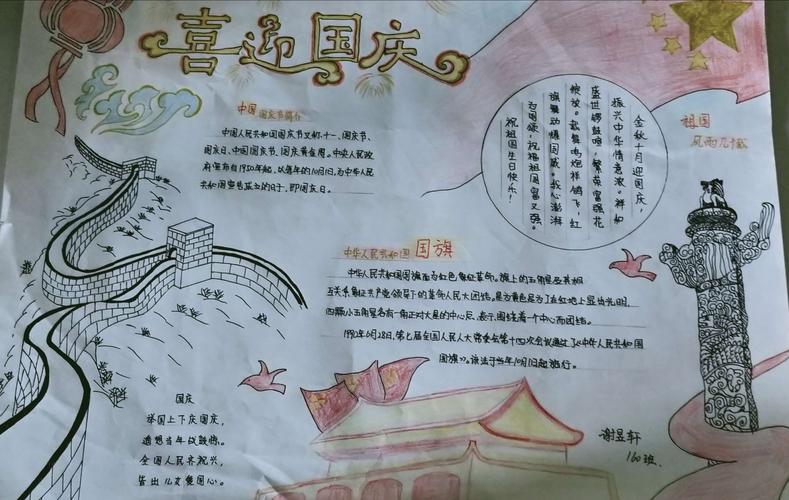 喜迎国庆
中国 国庆节简介
中国人民共和国国庆节又称:十一、国庆节、
国庆日、中国国庆节、国庆黄金周。中央人民政
府宣布自1950年起,以每年的10月1日,为中华人民
共和国宣告成立的日子,即国庆日。
金秋十月迎国庆,
振兴中华情意浓。祥和
盛世锣鼓喧,繁荣富强花
绽放。载舞鸣炮祥鸽飞,红
旗飘动国威。我心澎湃
为国颂,祝福祖国富又强。
祝祖国生日快乐!
祖国
风雨九十载
中华人民共和国 国旗
中华人民共和国国旗旗面为红色,象征革命。旗上的五角星及其相
互关系象征共产党领导下的革命人民大团结。星为黄色是为了在红地上显出光明,
四颗小五角星各有一角正对大星的中心尽,表示围绕着一个中心而团结。
1990年6月28日,第七届全国人民人大常委会第十四次会议通过了《中华人民共和国
国旗》。该法于当年10月1日起施行。
国庆
举国上下庆国庆,
遥想当年鼓擂。
全国人民齐祝兴,
皆出儿女爱国心。
谢昱轩
160班.